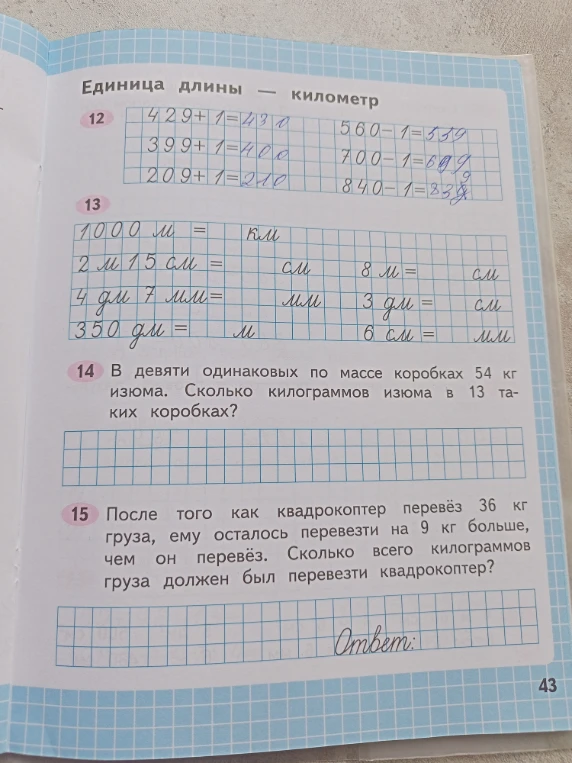 Единица длины — километр
12
429+1=430 560-1=559
399+1=400 700-1=699
209+1=210 840-1=839
13
1000 м = км
2 м 15 см = см 8 м = см
4 дм 7 мм = мм 3 дм = см
350 дм = м 6 см = мм
14 В девяти одинаковых по массе коробках 54 кг
изюма. Сколько килограммов изюма в 13 та-
ких коробках?
15 После того как квадрокоптер перевёз 36 кг
груза, ему осталось перевезти на 9 кг больше,
чем он перевёз. Сколько всего килограммов
груза должен был перевезти квадрокоптер?
Ответ:
43